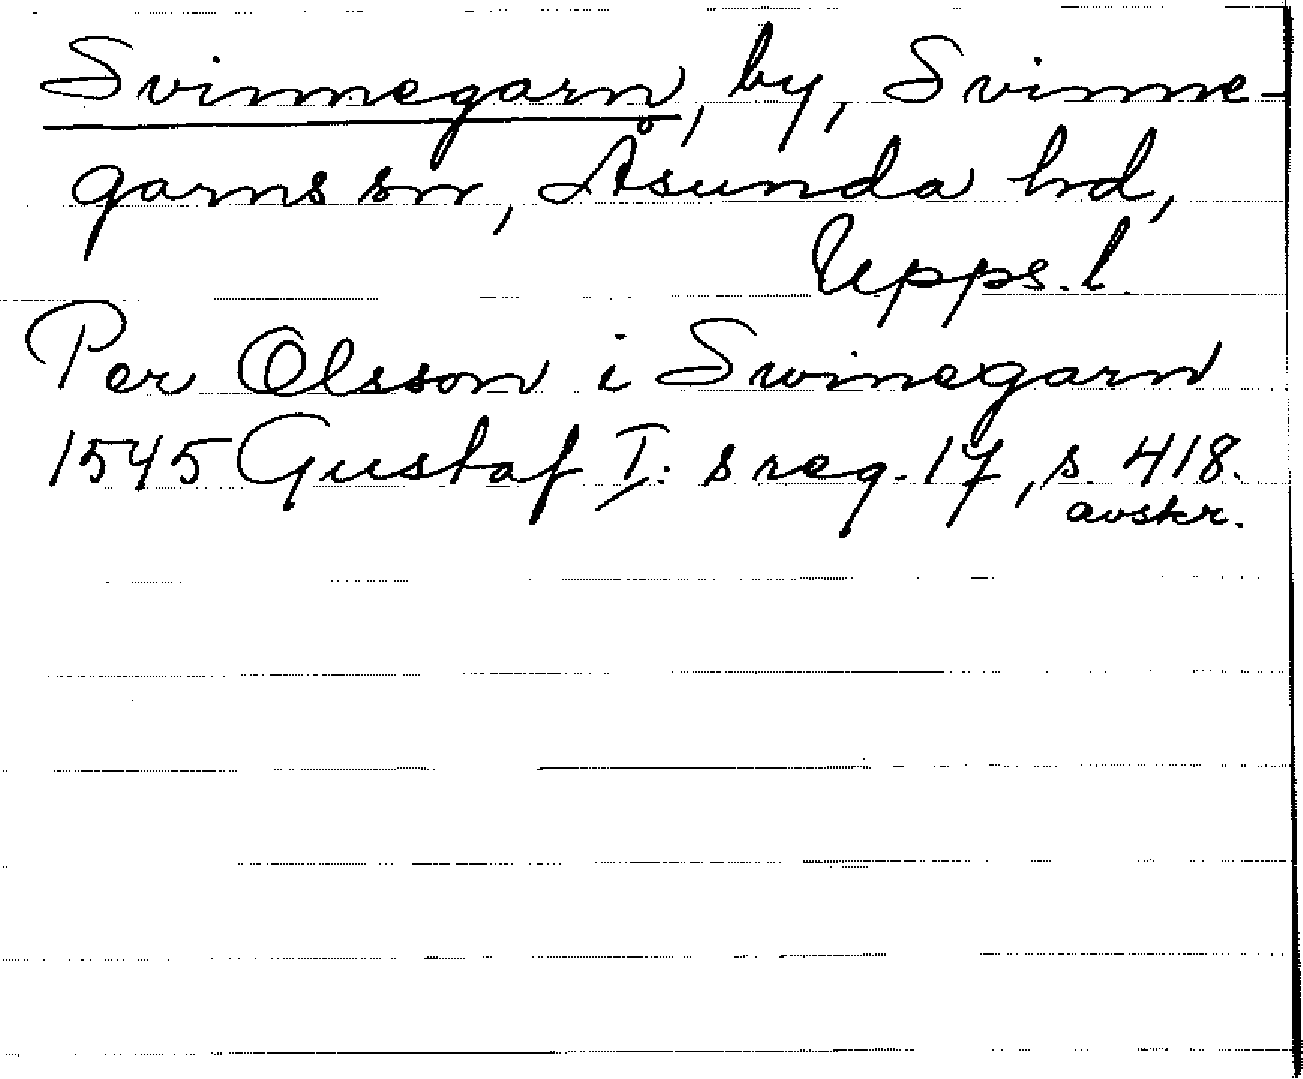 Svinnegarn, by, Svinne-
garns sn, Åsunda hd,
Upps. l.
Per Olsson i Swinegarn
1545 Gustaf I: s reg. 17, s. 418.
avskr.